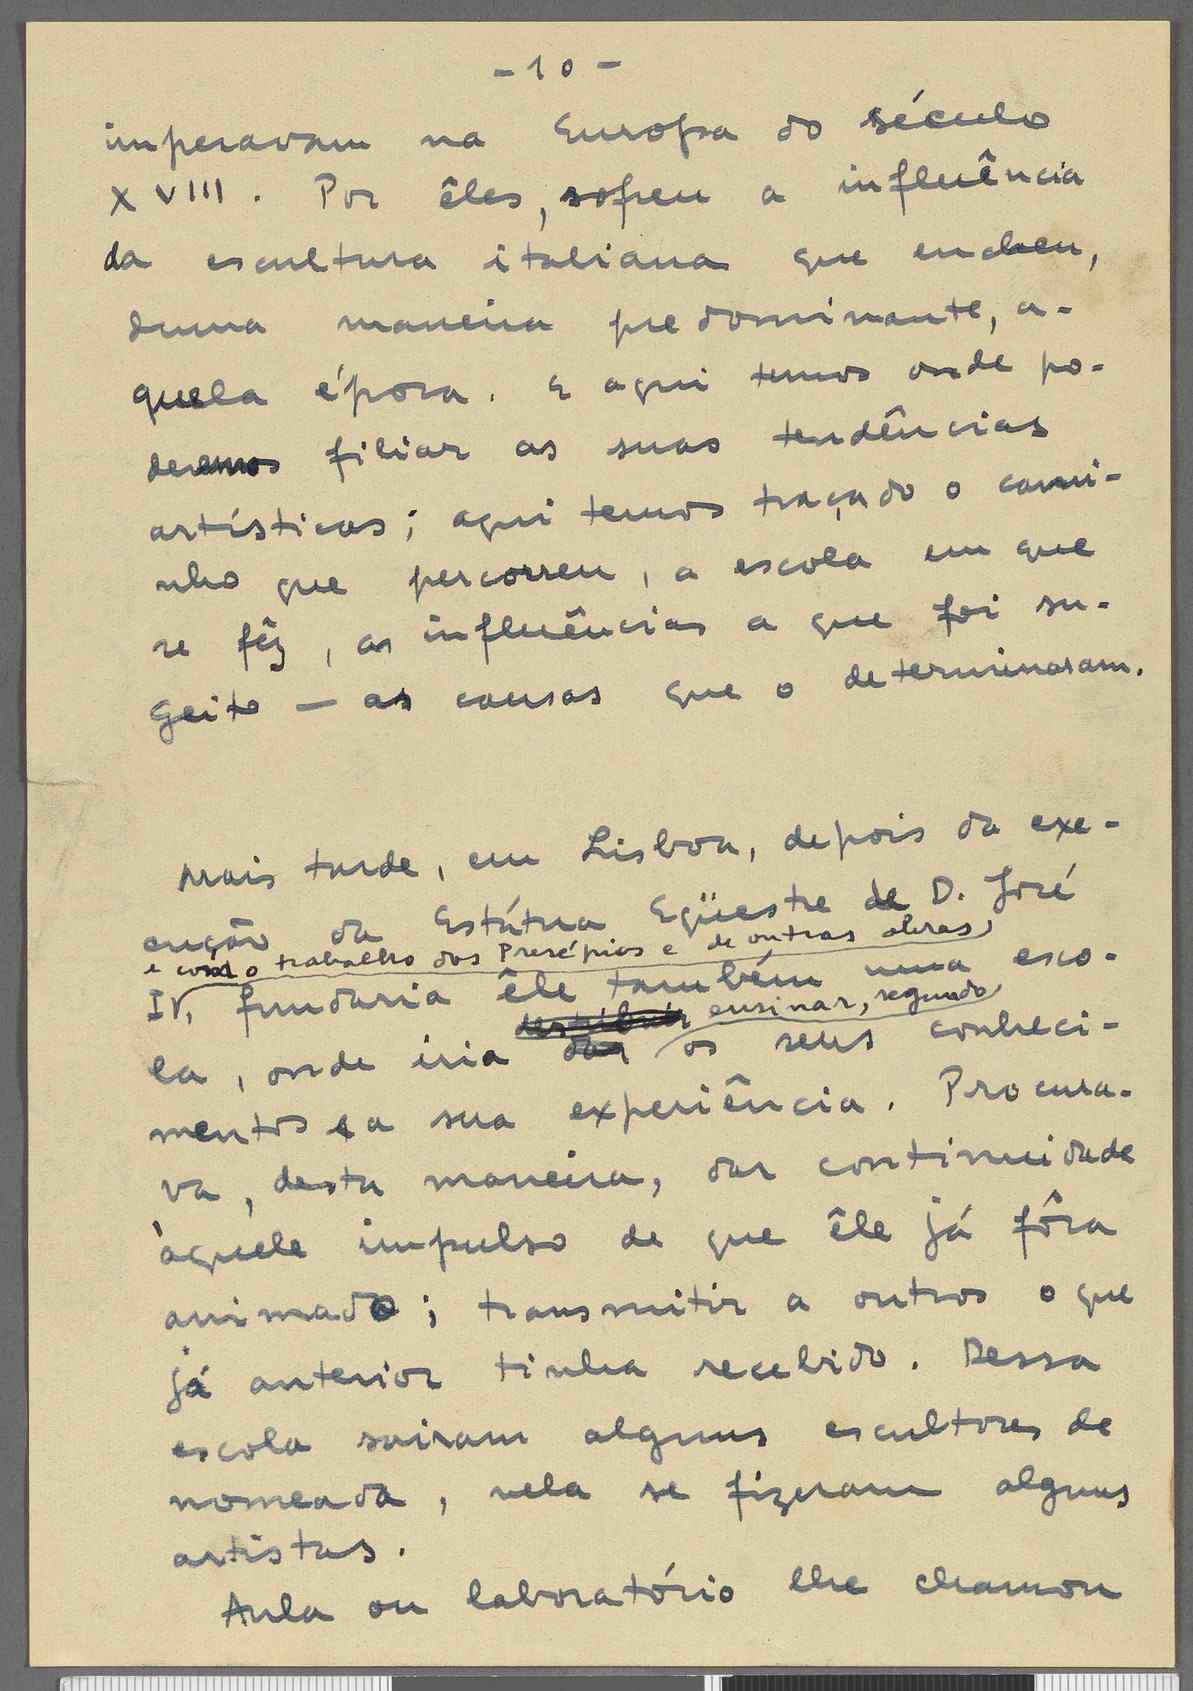 - 10 -
imperavam na Europa do século
XVIII. Por êles, sofreu a influência
da escultura italiana que encheu,
duma maneira predominante, a-
quela época. E aqui temos onde po-
deremos filiar as suas tendências
artísticas; aqui temos traçado o cami-
nho que percorreu, a escola em que
se fêz, as influências a que foi su-
geito — as causas que o determinaram.
Mais tarde, em Lisboa, depois da exe-
cução da Estátua Eqüestre de D. José
e com o trabalho dos Presépios e de outras obras,
I, fundaria êle também uma esco-
destribuir ensinar, segundo
la, onde iria dar os seus conheci-
mentos e a sua experiência. Procura-
va, desta maneira, dar continuidade
àquele impulso de que êle já fôra
animado; transmitir a outros o que
já anterior tinha recebido. Dessa
escola sairam alguns escultores de
nomeada, nela se fizeram alguns
artistas.
Aula ou laboratório lhe chamou